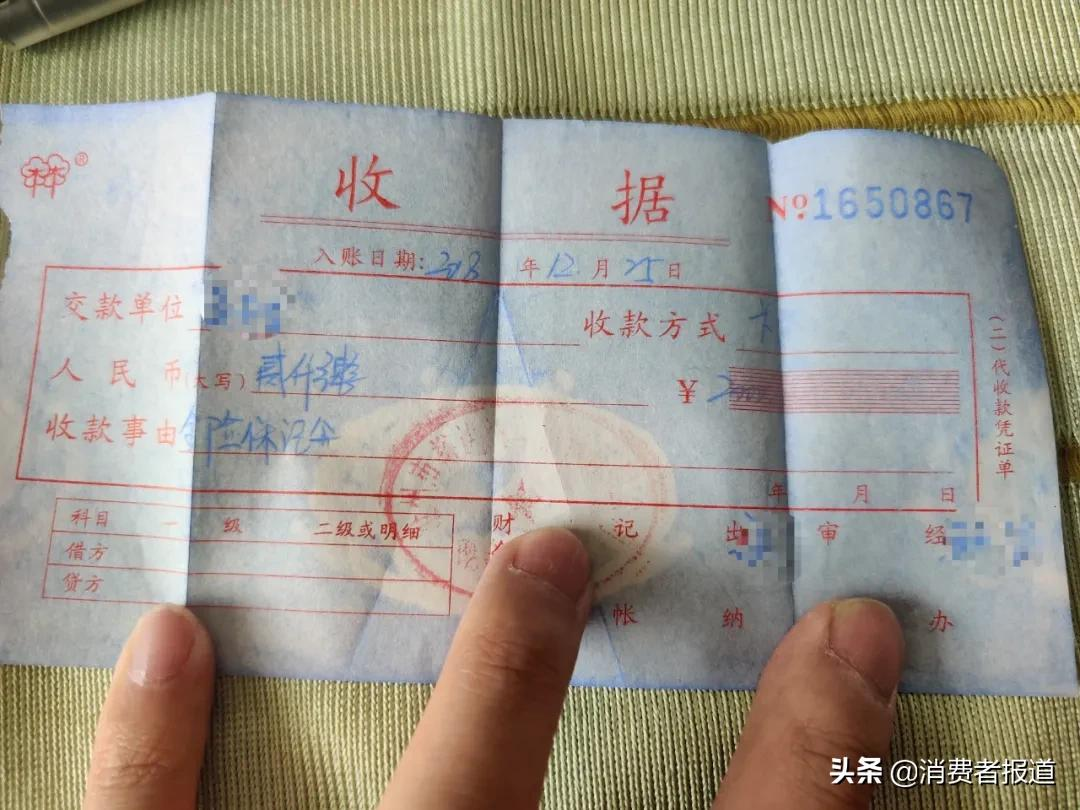 ®
收 据 No:1650867
入账日期: 2018 年 12 月 25 日
交款单位 收款方式 卡
人民币(大写) 贰仟圆整 ¥
收款事由 全险保证金
年 月 日
(二)代收款凭证单
科目 一级 二级或明细
借方
贷方
财 记 出 审 经
帐 纳 办
头条 @消费者报道